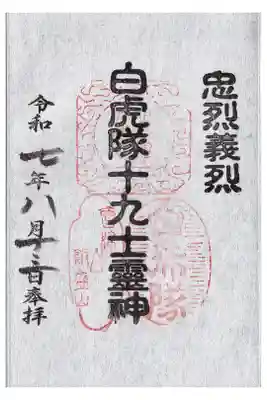 忠烈義烈
白虎隊十九士靈神
令和七年八月十二日奉拝
飯盛山